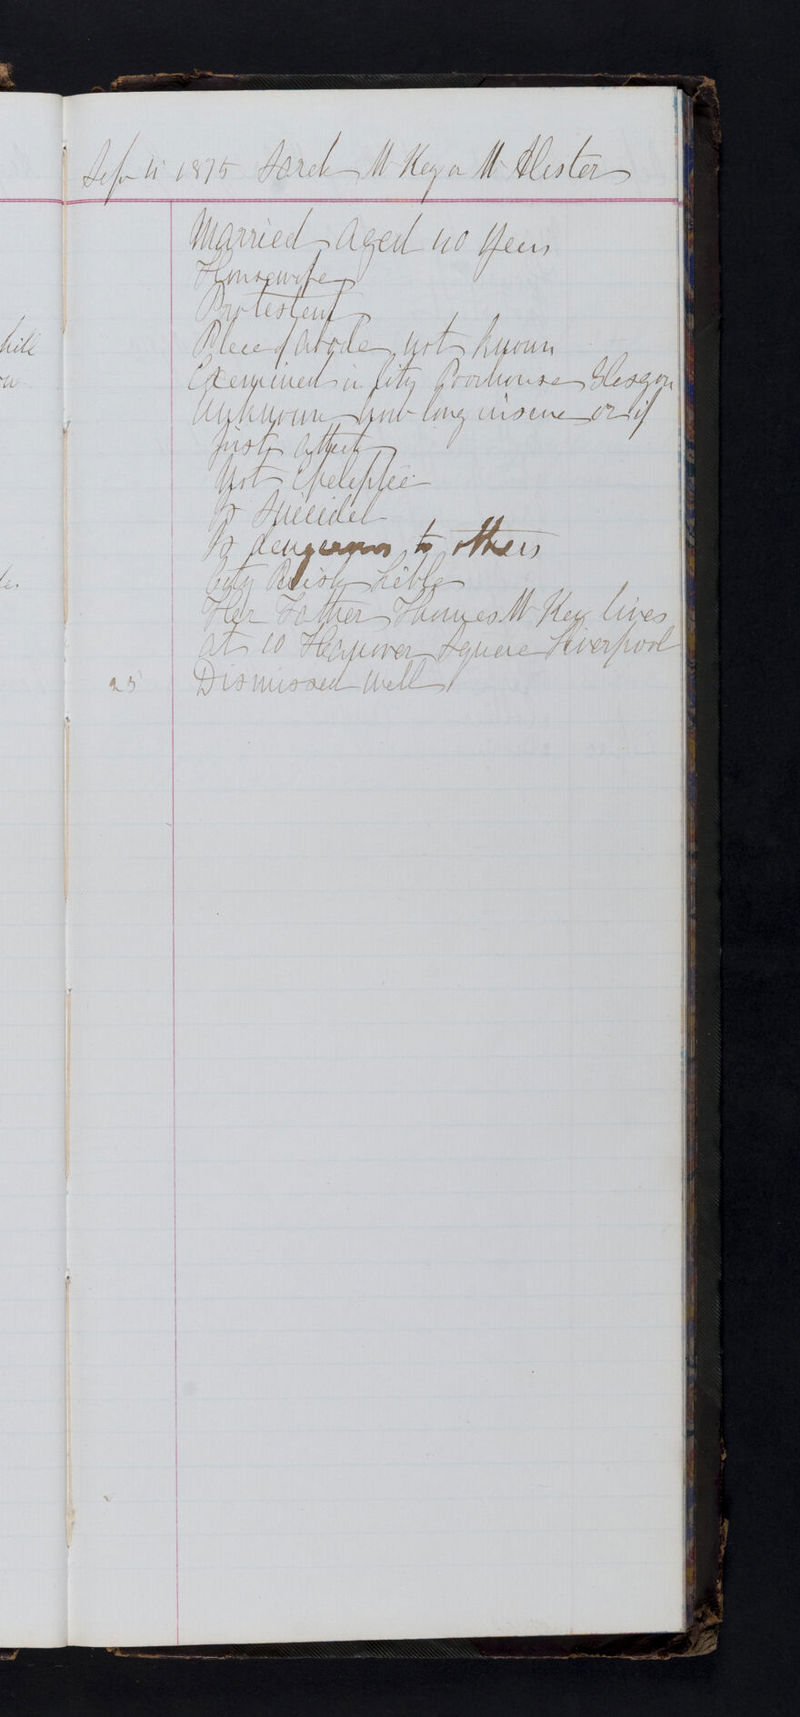 Sepr 4 1875 Sarah McKey or McAlister
Married Aged 40 Years
Housewife
Protestant
Place of abode not known
Examined in City Poorhouse Glasgow
Unknown how long insane or if
first attack
Not Epileptic
or Suicidal
or dangerous to others
City Parish Liable
Her Father Thomas McKey lives
at 10 Hanover Square Liverpool
25 Dismissed Well
hill